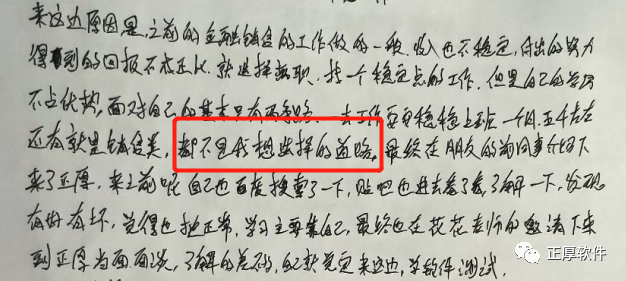 来这边原因是,之前的金融销售的工作做的一般,收入也不稳定,付出的努力
得到的回报不成正比,就选择离职,找一个稳定点的工作,但是自己的学历
不占优势,面对自己的基本只有两条路,去工作安安稳稳上班一个月五千左右
还有就是销售类,都不是我想选择的道路,最终在朋友的前同事介绍下
来了正厚,来之前呢自己也百度搜索了一下,贴吧也进去看了看,了解一下,发现
有好有坏,觉得也挺正常,学习主要靠自己,最终也在花花老师的邀请下来
到正厚当面面谈,了解的差不多,自己就决定来这边,学软件测试.
正厚软件